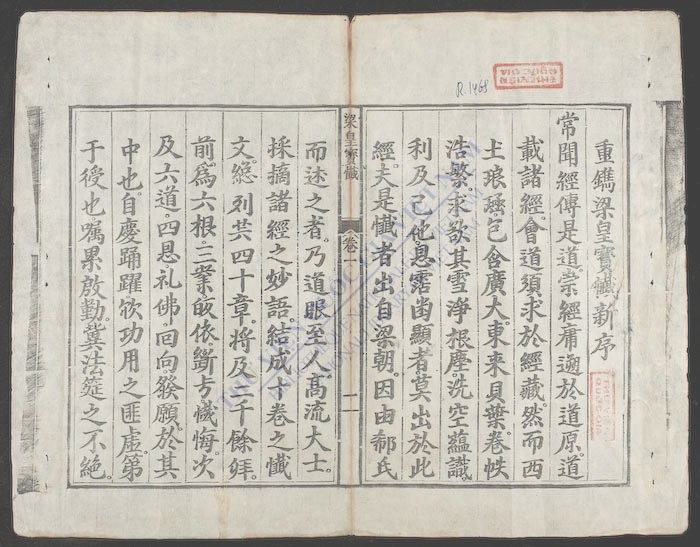 R.1468
THƯ VIỆN
QUỐC GIA
重鐫梁皇寶懺新序
常聞經傳是道。崇經庸邇於道原。道
載諸經。會道須求於經藏。然而西
土琅。包含廣大。東來貝葉。卷帙
浩繁。求欲其雪淨根塵。洗空蘊識。
利及己他。恩霑幽顯者。莫出於此
經。夫是懺者。出自梁朝。因由郗氏
梁皇寶懺
卷一
而述之者。乃道眼至人。高流大士。
採摘諸經之妙語。結成十卷之懺
文。緫列共四十章。將及二千餘拜。
前為六根三業。皈依斷懺悔。次
及六道四恩。礼佛回向發願。於其
中也。自慶踊躍。欣功用之匪虛。第
于後也。囑累啟勤。冀法筵之不絶。